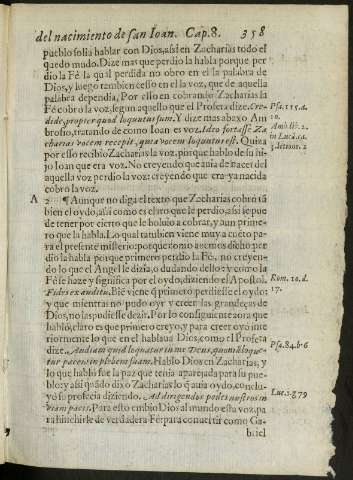 del nacimiento de san Ioan. Cap. 8. 358
pueblo solia hablar con Dios, assi en Zacharias todo el
quedo mudo. Dize mas que perdio la habla porque per
dio la Fé la qual perdida no obro en el la palabra de
Dios, y luego tambien cesso en el la voz, que de aquella
palabra dependia, Por esso en cobrando Zacharias la
Fé cobro la voz, segun aquello que el Profeta dize. Cre
didi, propter quod loquutus sum. Y dize mas abaxo Am
brosio, tratando de como Ioan es voz. Ideo fortasse Za
charias vocem recepit, quia vocem loquutus est. Quiza
por esso recibio Zacharias la voz, porque hablo de su hi-
jo Ioan que era voz. No creyendo que auia de nacer del
aquella voz perdio la voz: creyendo que era ya nacida
cobro la voz.
A 2 ¶ Aunque no diga el texto que Zacharias cobro tã
bien el oydo, assi como es claro que le perdio, assi se pue
de tener por cierto que le boluio a cobrar, y aun prime-
ro que la habla. Lo qual tambien viene muy a cuẽto pa-
ra el presente misterio: porque como auemos dicho per
dio la habla porque primero perdio la Fé, no creyen-
do lo que el Angel le dizia, o dudando dello: y como la
Fé se haze y significa por el oydo, diziendo el Apostol.
Fides ex auditu. Biẽ viene q̃ primero perdiesse el oydo:
y que mientras no pudo oyr y creer las grandezas de
Dios, no las pudiesse dezir. Por lo consiguiente aora que
hablo, claro es que primero creyo, y para creer oyo inte
riormente lo que en el hablaua Dios, como el Profeta
dize. Audiam quid loquatur in me Deus, quia loque-
tur pacem in plebem suam. Hablo Dios en Zacharias, y
lo que hablo fue la paz que tenia aparejada para su pue-
blo: y assi quãdo dixo Zacharias lo q̃ auia oydo, conclu-
yo su profecia diziendo. Ad dirigendos pedes nostros in
viam pacis. Para esto embio Dios al mundo esta voz, pa
ra hinchirle de verdadera Fé: para conuertir como Ga-
briel
Psa. 115. a.
10.
Amb. lib. 2.
in Luc. ca.
Rom. 10. d.
17.
Psa. 84. b. 6
Luc. 1. g 79